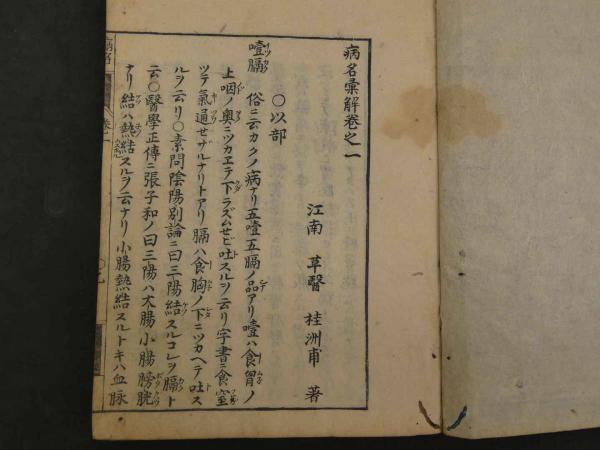 病名彙解卷之一
江南 草醫 桂洲甫 著
○以部
噎膈 俗ニ云カクノ病ナリ五噎五膈ノ品アリ噎ハ食胃ノ
上咽ノ奥ニツカヱテ下ラズムセビ吐スルヲ云リ字書ニ食窒
ツテ氣通セザルナリトアリ膈ハ食胸ノ下ニツカヘテ吐ス
ルヲ云リ○素問陰陽別論ニ曰三陽結スルコレヲ膈ト
云○醫學正傳ニ張子和ノ曰三陽ハ大腸小腸膀胱
ナリ結ハ熱結スルヲ云ナリ小腸熱結スルトキハ血脉
卷一